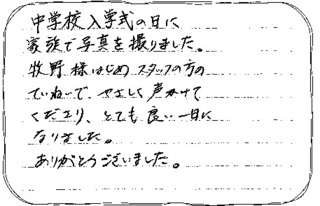 中学校入学式の日に
家族で写真を撮りました。
牧野様はじめスタッフの方の
ていねいで、やさしく声かけて
くださり、とても良い一日に
なりました。
ありがとうございました。